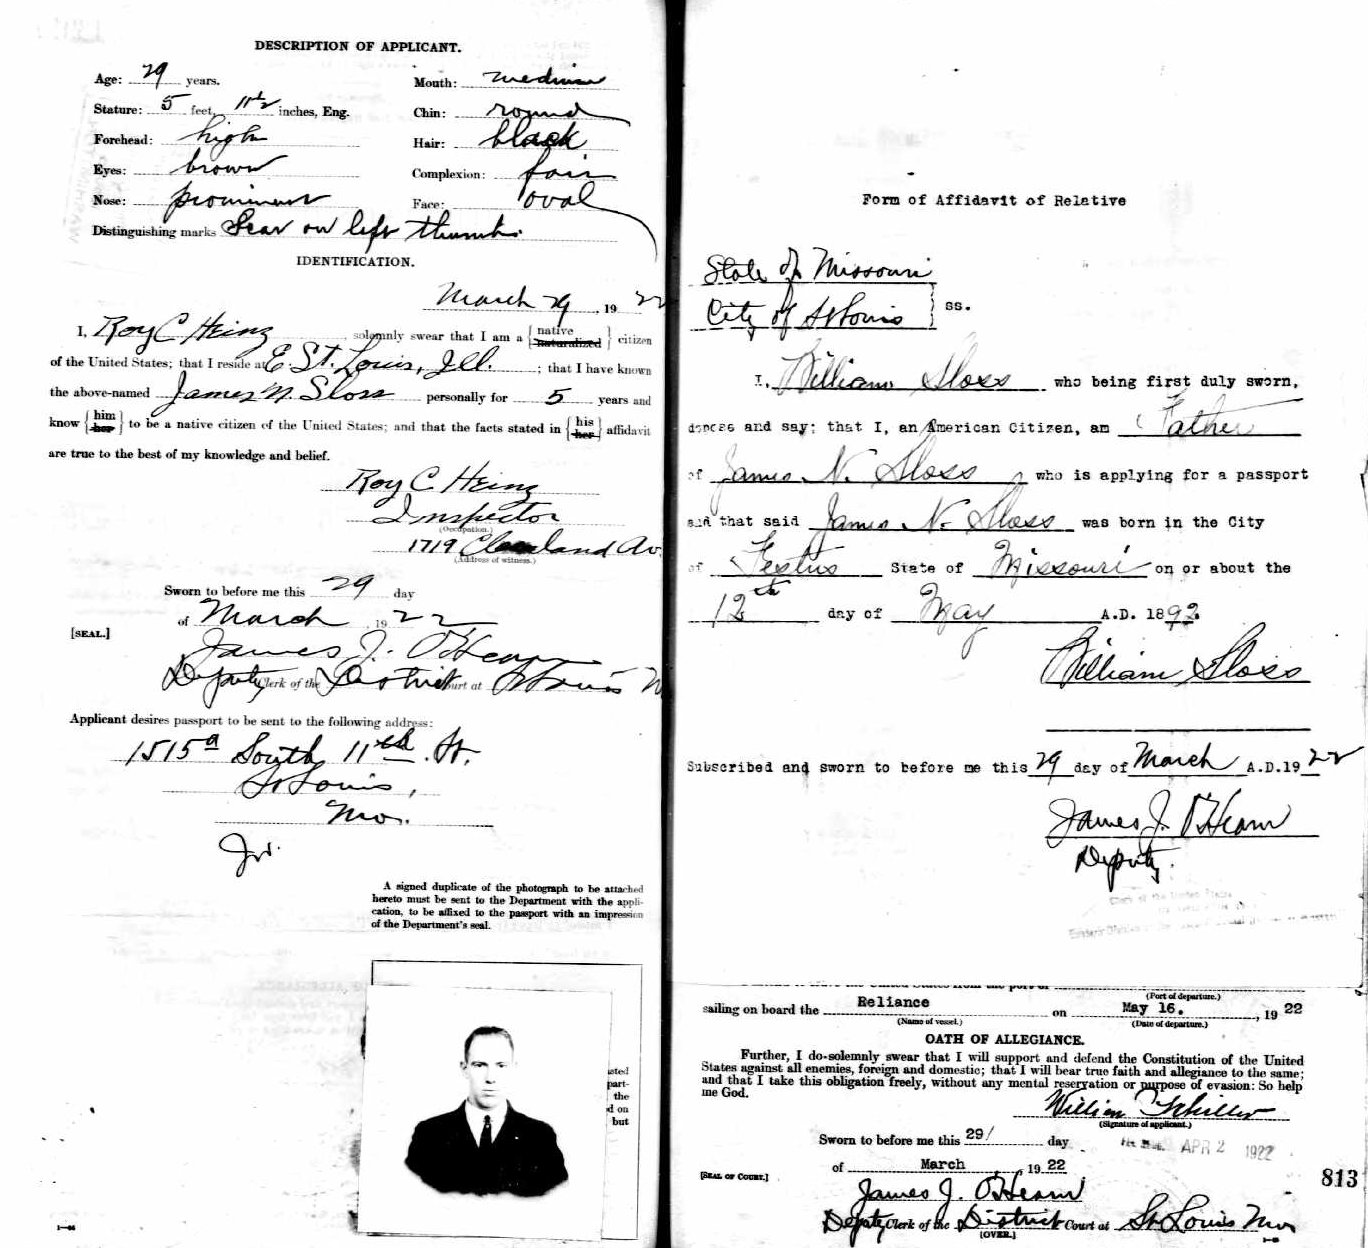 DESCRIPTION OF APPLICANT.
Age: 29 years.
Mouth: medium
Stature: 5 feet, 11 1/2 inches, Eng.
Chin: round
Forehead: high
Hair: black
Eyes: brown
Complexion: fair
Nose: prominent
Face: oval
Distinguishing marks Scar on left thumb.
IDENTIFICATION.
March 29, 1922
I, Roy C Heinz, solemnly swear that I am a {native naturalized} citizen
of the United States; that I reside at E. St. Louis, Ill.; that I have known
the above-named James N. Sloss personally for 5 years and
know {him her} to be a native citizen of the United States; and that the facts stated in {his her} affidavit
are true to the best of my knowledge and belief.
Roy C. Heinz
Inspector
(Occupation.)
1719 Cleveland Av.
(Address of witness.)
Sworn to before me this 29 day
of March, 1922
[SEAL.]
James J. O'Hearn
Deputy Clerk of the District Court at St Louis
Applicant desires passport to be sent to the following address:
1515a South 11th St.
St Louis,
Mo.
A signed duplicate of the photograph to be attached
hereto must be sent to the Department with the appli-
cation, to be affixed to the passport with an impression
of the Department's seal.
part-
the
on
but
Form of Affidavit of Relative
State of Missouri
City of St Louis } ss.
I, William Sloss who being first duly sworn,
and say; that I, an American Citizen, am Father
of James N. Sloss, who is applying for a passport
and that said James N. Sloss was born in the City
of Festus State of Missouri on or about the
12th day of May A.D. 1892.
William Sloss
Subscribed and sworn to before me this 29 day of March A.D.1922
James J. O'Hearn
Deputy
(Port of departure.)
sailing on board the Reliance on May 16., 1922
(Name of vessel.) (Date of departure.)
OATH OF ALLEGIANCE.
Further, I do solemnly swear that I will support and defend the Constitution of the United
States against all enemies, foreign and domestic; that I will bear true faith and allegiance to the same;
and that I take this obligation freely, without any mental reservation or purpose of evasion: So help
me God.
William Schiller
(Signature of applicant.)
Sworn to before me this 29/ day
APR 2 1922
of March, 1922
[SEAL OF COURT.]
813
James J. O'Hearn
Deputy Clerk of the District Court at St Louis Mo
[OVER.]